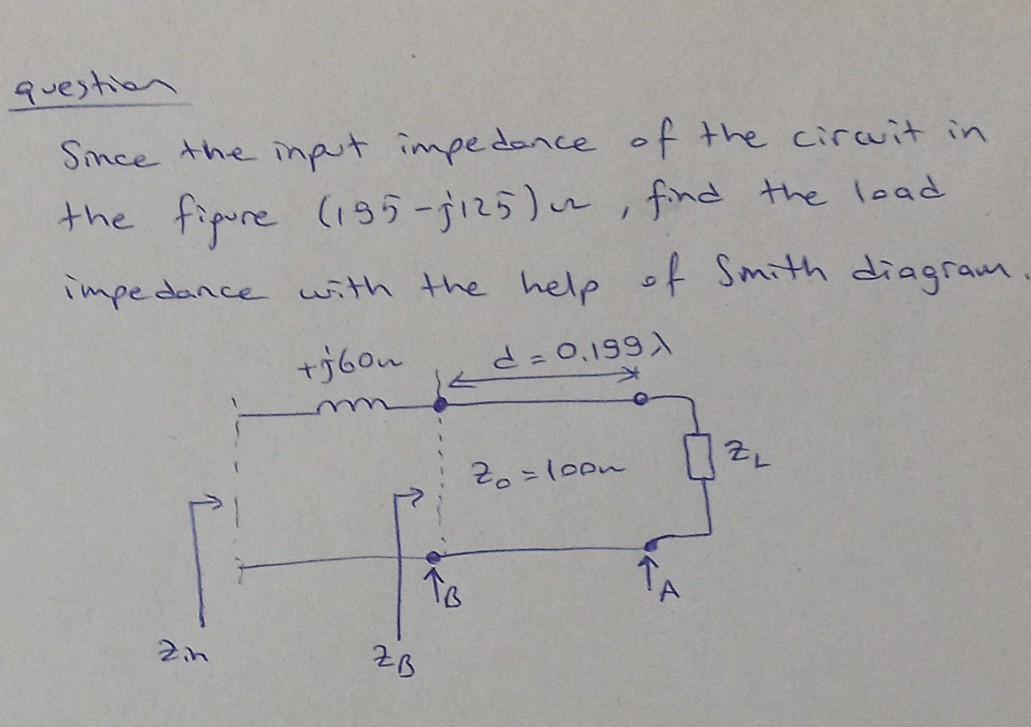 question
Since the input impedance of the circuit in
the figure (195-j125)Ω, find the load
impedance with the help of Smith diagram.
+j60Ω
d = 0.199λ
Z₀ = 100Ω
Z_L
B
A
Zin
Z_B